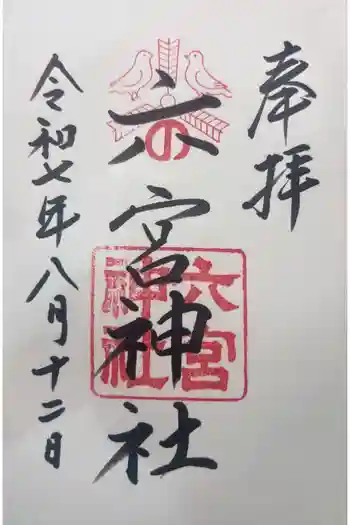 奉拝
六の宮神社
六宮神社
令和七年八月十二日